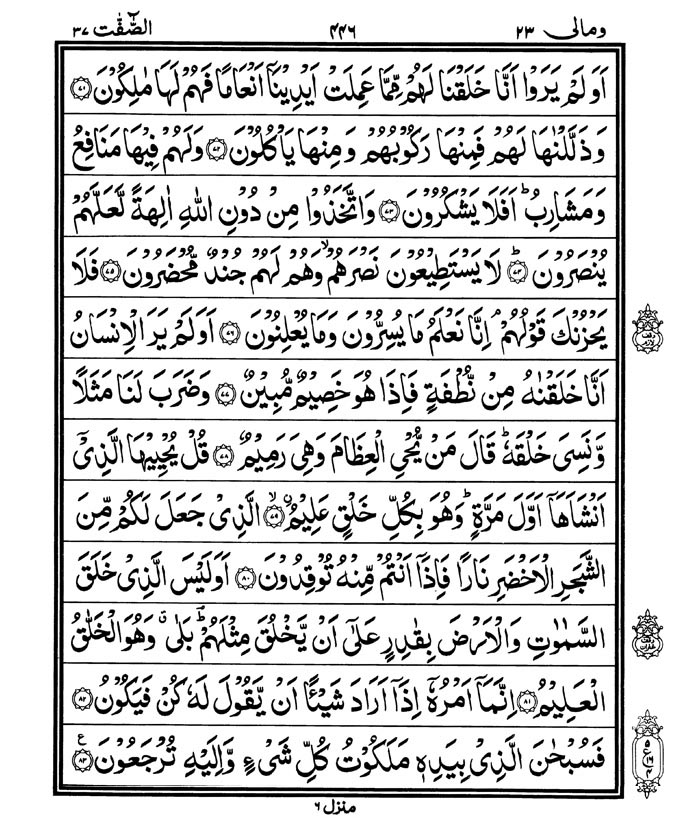 ومالی ٢٣ ۴۴۶ الصّٰٓفّٰت ٣٧
اَوَلَمۡ يَرَوۡا اَنَّا خَلَقۡنَا لَهُمۡ مِّمَّا عَمِلَتۡ اَيۡدِيۡنَاۤ اَنۡعَامًا فَهُمۡ لَهَا مٰلِكُوۡنَ ﴿۷۱﴾
وَذَلَّـلۡنٰهَا لَهُمۡ فَمِنۡهَا رَكُوۡبُهُمۡ وَمِنۡهَا يَاۡكُلُوۡنَ ﴿۷۲﴾ وَلَهُمۡ فِيۡهَا مَنَافِعُ
وَمَشَارِبُ‌ؕ اَفَلَا يَشۡكُرُوۡنَ ﴿۷۳﴾ وَاتَّخَذُوۡا مِنۡ دُوۡنِ اللّٰهِ اٰلِهَةً لَّعَلَّهُمۡ
يُنۡصَرُوۡنَؕ ﴿۷۴﴾ لَا يَسۡتَطِيۡعُوۡنَ نَصۡرَهُمۡۙ وَهُمۡ لَهُمۡ جُنۡدٌ مُّحۡضَرُوۡنَ ﴿۷۵﴾ فَلَا
يَحۡزُنۡكَ قَوۡلُهُمۡ‌ۘ اِنَّا نَعۡلَمُ مَا يُسِرُّوۡنَ وَمَا يُعۡلِنُوۡنَ ﴿۷۶﴾ اَوَلَمۡ يَرَ الۡاِنۡسَانُ
وقف لازم
اَنَّا خَلَقۡنٰهُ مِنۡ نُّطۡفَةٍ فَاِذَا هُوَ خَصِيۡمٌ مُّبِيۡنٌ ﴿۷۷﴾ وَضَرَبَ لَنَا مَثَلًا
وَّنَسِىَ خَلۡقَهٗ‌ؕ قَالَ مَنۡ يُّحۡىِ الۡعِظَامَ وَهِىَ رَمِيۡمٌ ﴿۷۸﴾ قُلۡ يُحۡيِيۡهَا الَّذِىۡۤ
اَنۡشَاَهَاۤ اَوَّلَ مَرَّةٍ‌ؕ وَهُوَ بِكُلِّ خَلۡقٍ عَلِيۡمُۨۙ ﴿۷۹﴾ الَّذِىۡ جَعَلَ لَـكُمۡ مِّنَ
الشَّجَرِ الۡاَخۡضَرِ نَارًا فَاِذَاۤ اَنۡتُمۡ مِّنۡهُ تُوۡقِدُوۡنَ ﴿۸۰﴾ اَوَلَيۡسَ الَّذِىۡ خَلَقَ
السَّمٰوٰتِ وَالۡاَرۡضَ بِقٰدِرٍ عَلٰٓى اَنۡ يَّخۡلُقَ مِثۡلَهُمۡؔ‌ؕ بَلٰىۗ وَهُوَ الۡخَـلّٰقُ
وقف غفران
الۡعَلِيۡمُ ﴿۸۱﴾ اِنَّمَاۤ اَمۡرُهٗۤ اِذَاۤ اَرَادَ شَیْـًٔـا اَنۡ يَّقُوۡلَ لَهٗ كُنۡ فَيَكُوۡنُ ﴿۸۲﴾
فَسُبۡحٰنَ الَّذِىۡ بِيَدِهٖ مَلَـكُوۡتُ كُلِّ شَىۡءٍ وَّاِلَيۡهِ تُرۡجَعُوۡنَ ﴿۸۳﴾ ع
۵
ع ١٦
۴
منزل ۶